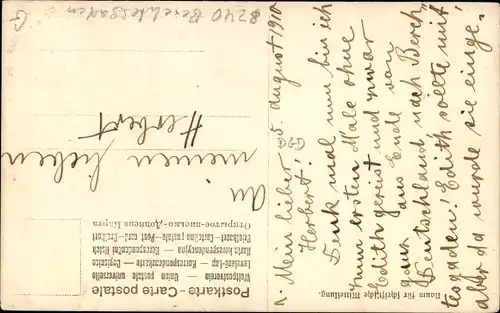 8240 Berchtesgaden
Postkarte - Carte postale
Weltpostverein — Union postale universelle
Levelező-Lap — Korrespondenzkarte — Dopisnice
Karta korespondencyjna — Korespondenční lístek
Briefkaart — Cartolina postale — Post card — Brefkort
Открытое письмо — Дописна Карта
An
meinen lieben
Herbert
Raum für schriftliche Mitteilung.
5. August 1910
Mein lieber
Herbert!
Denk mal nun bin ich
zum ersten Male ohne
Edith gereist und zwar
ans Ende von
ganz
Deutschland nach Berch
tesgaden! Edith sollte mit
aber da wurde sie einge-